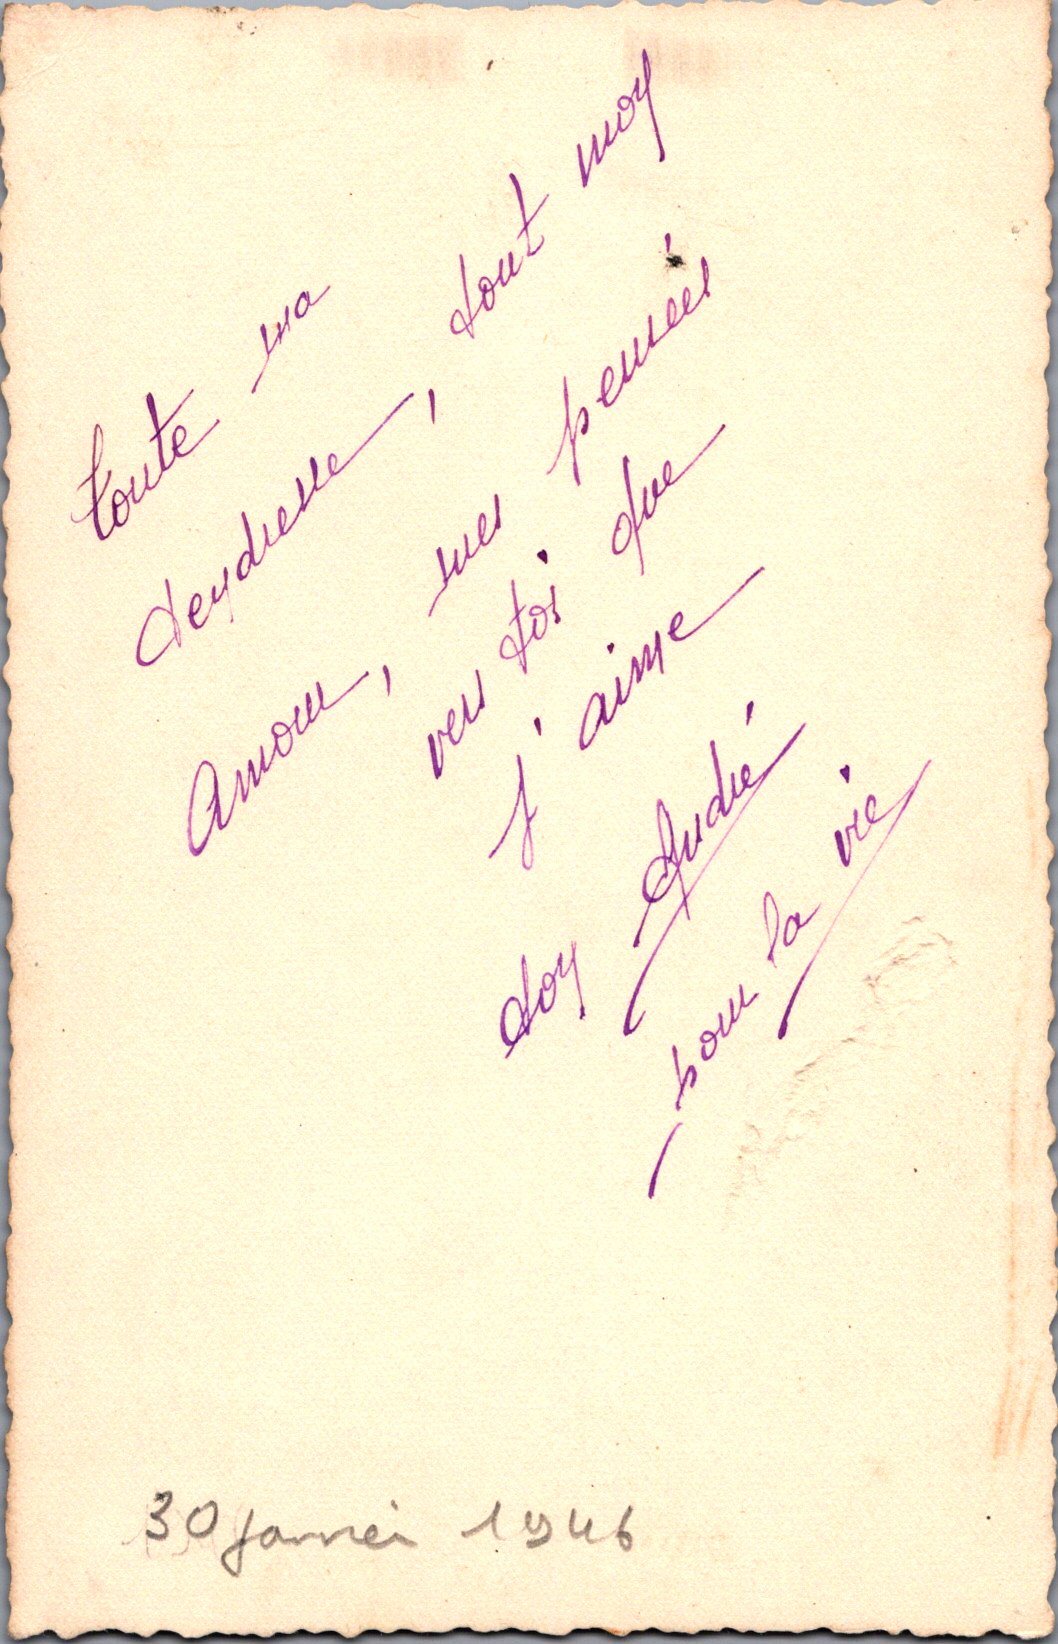 toute ma
tendresse, tout mon
Amour, mes pensées
vers toi que
j'aime
ton André
pour la vie
30 janvier 1946